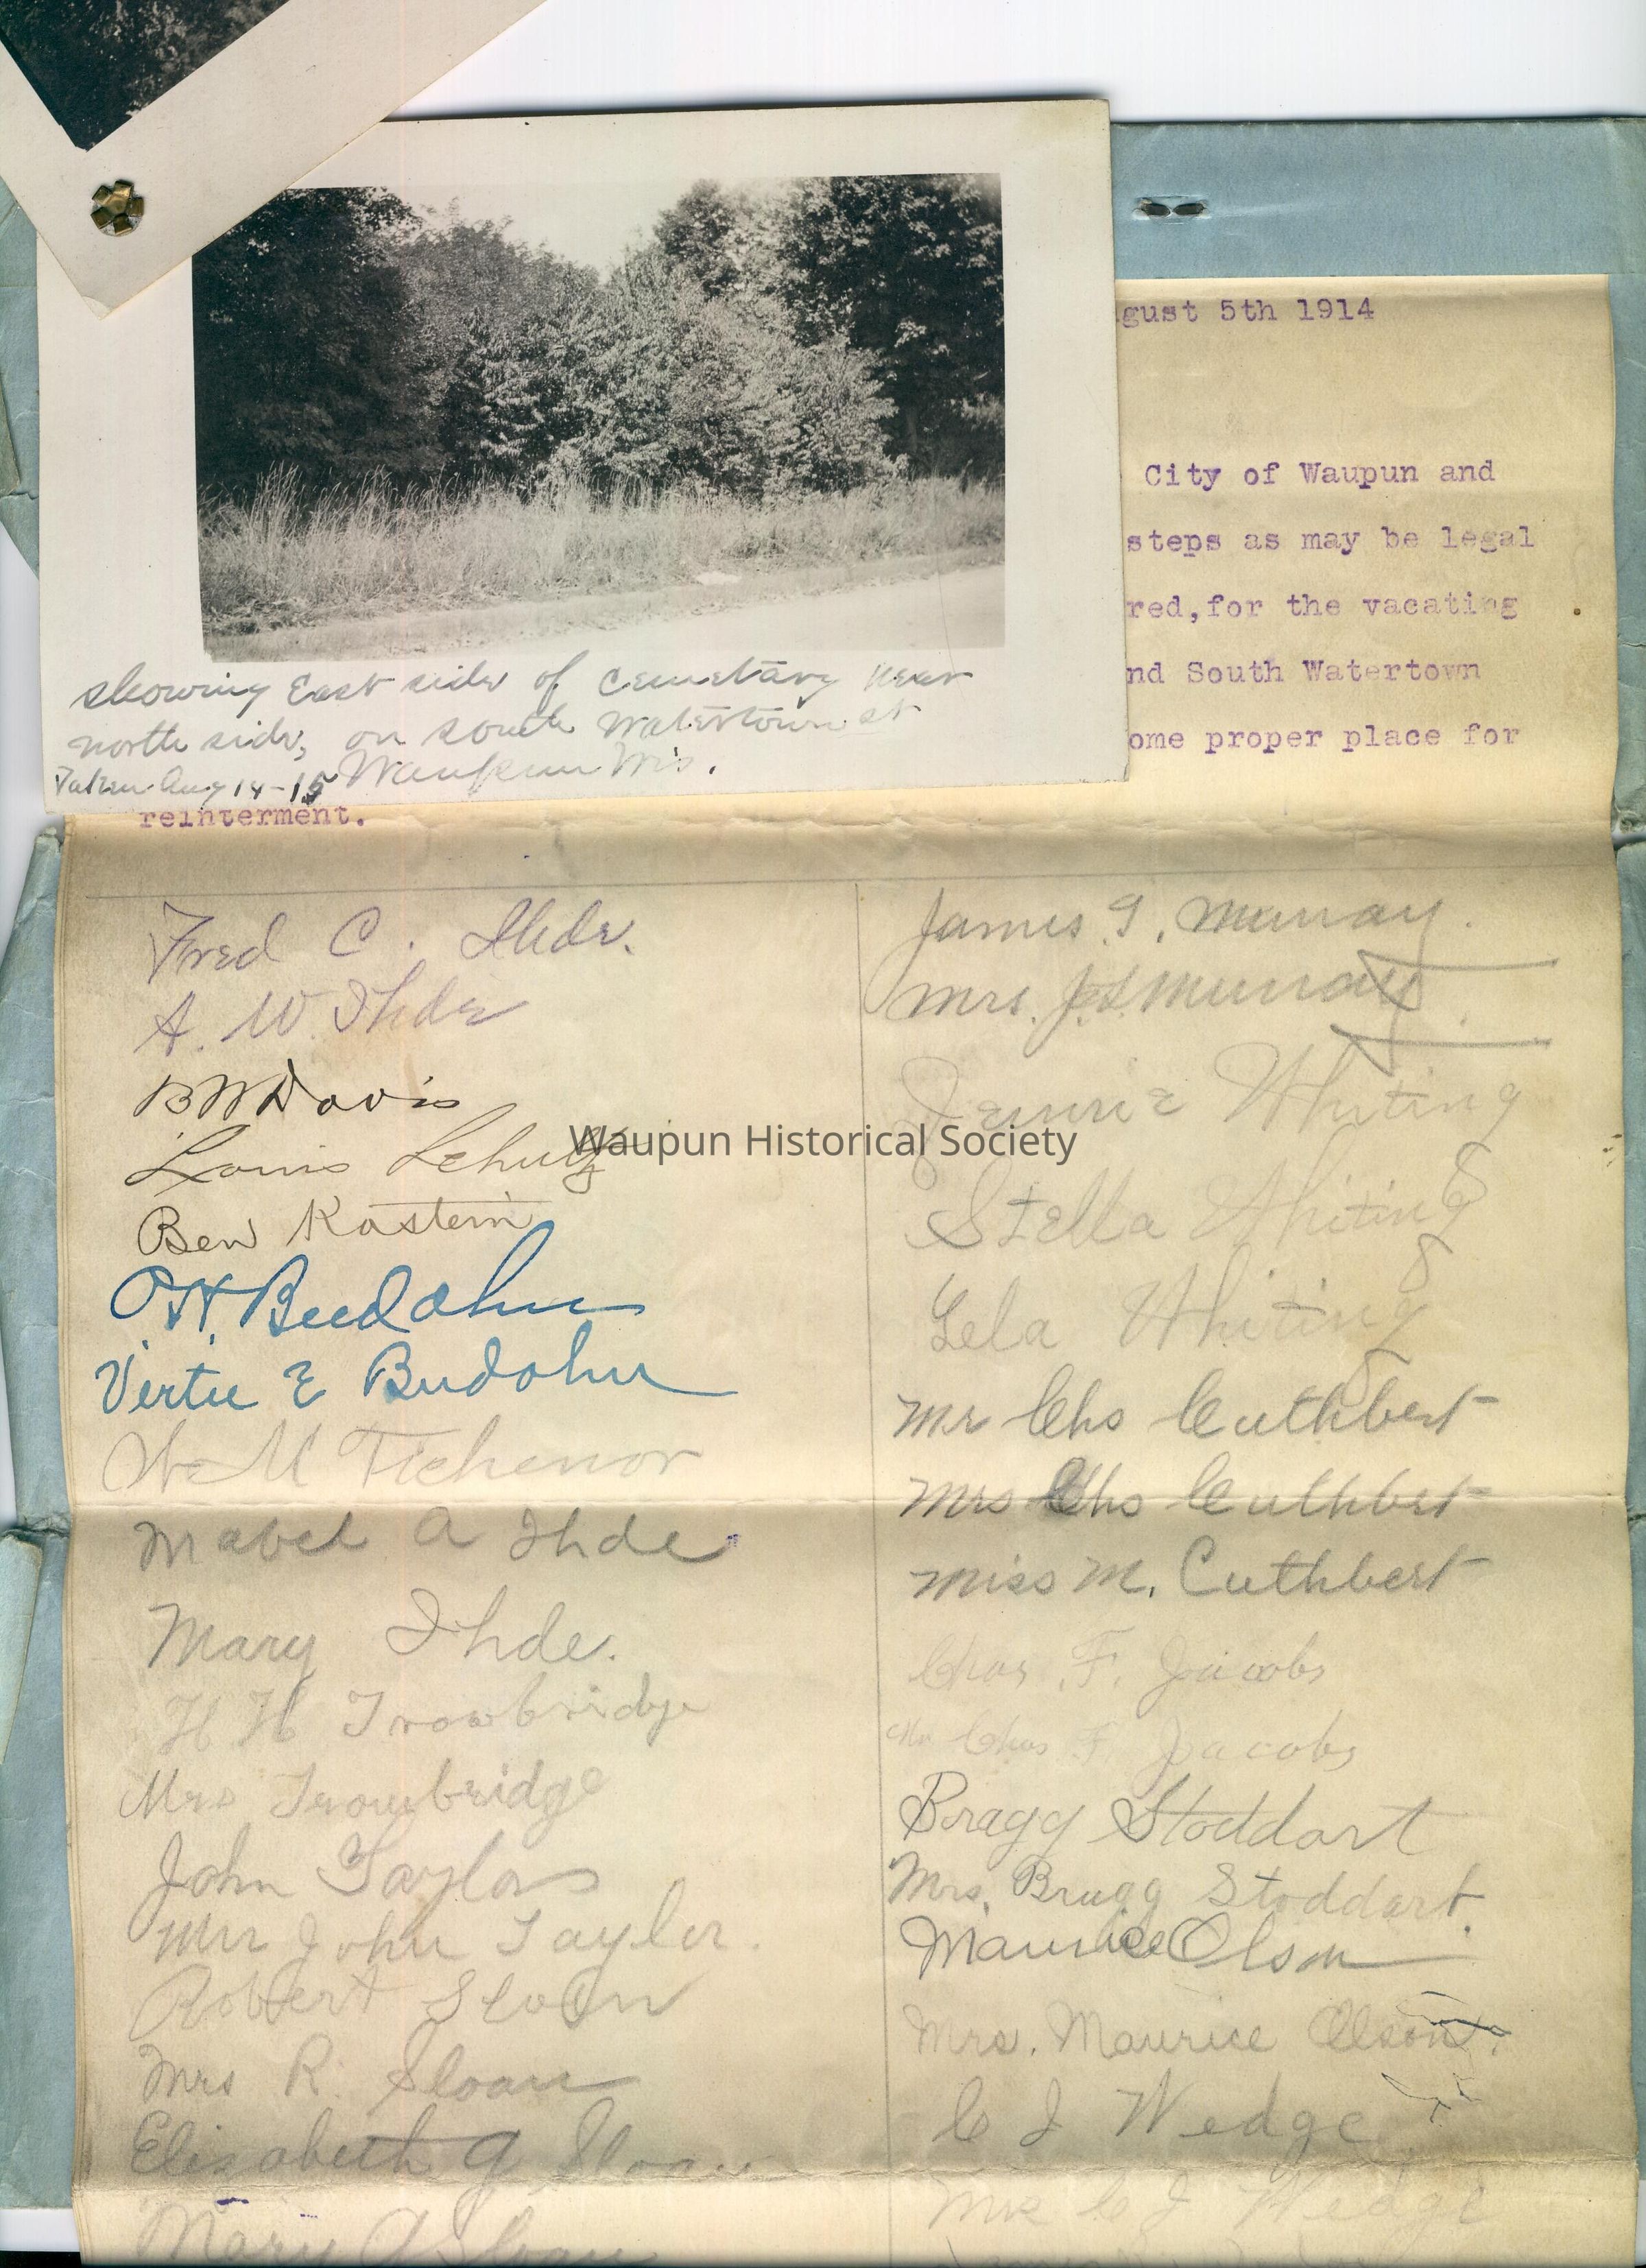 gust 5th 1914
City of Waupun and
steps as may be legal
red,for the vacating
nd South Watertown
ome proper place for
showing East side of cemetary near
north side, on south Watertown st
Taken Aug 14-15 Waupun Wis.
reinterment.
Fred C. Ihde.
A. W. Ihde
B W Davis
Louis Schultz
Ben Kastein
O. H. Beedahn
Vertie E Budahn
M Tichenor
Mabel A Ihde
Mary Ihde.
H H Trowbridge
Mrs Trowbridge
John Taylor
Mrs John Taylor.
Robert Sloan
Mrs R. Sloan
Elizabeth G Sloan
Mary A Sloan
James J. Murray.
Mrs. J. Murray
Jennie Whiting
Stella Whiting
Lela Whiting
Mr Chs Cuthbert
Mrs Chs Cuthbert
Miss M. Cuthbert
Chas. F. Jacobs
Mr Chas F. Jacobs
Bragg Stoddart
Mrs. Bragg Stoddart.
Maurice Olson
Mrs. Maurice Olson.
C J Wedge
Mrs C J Wedge
Waupun Historical Society